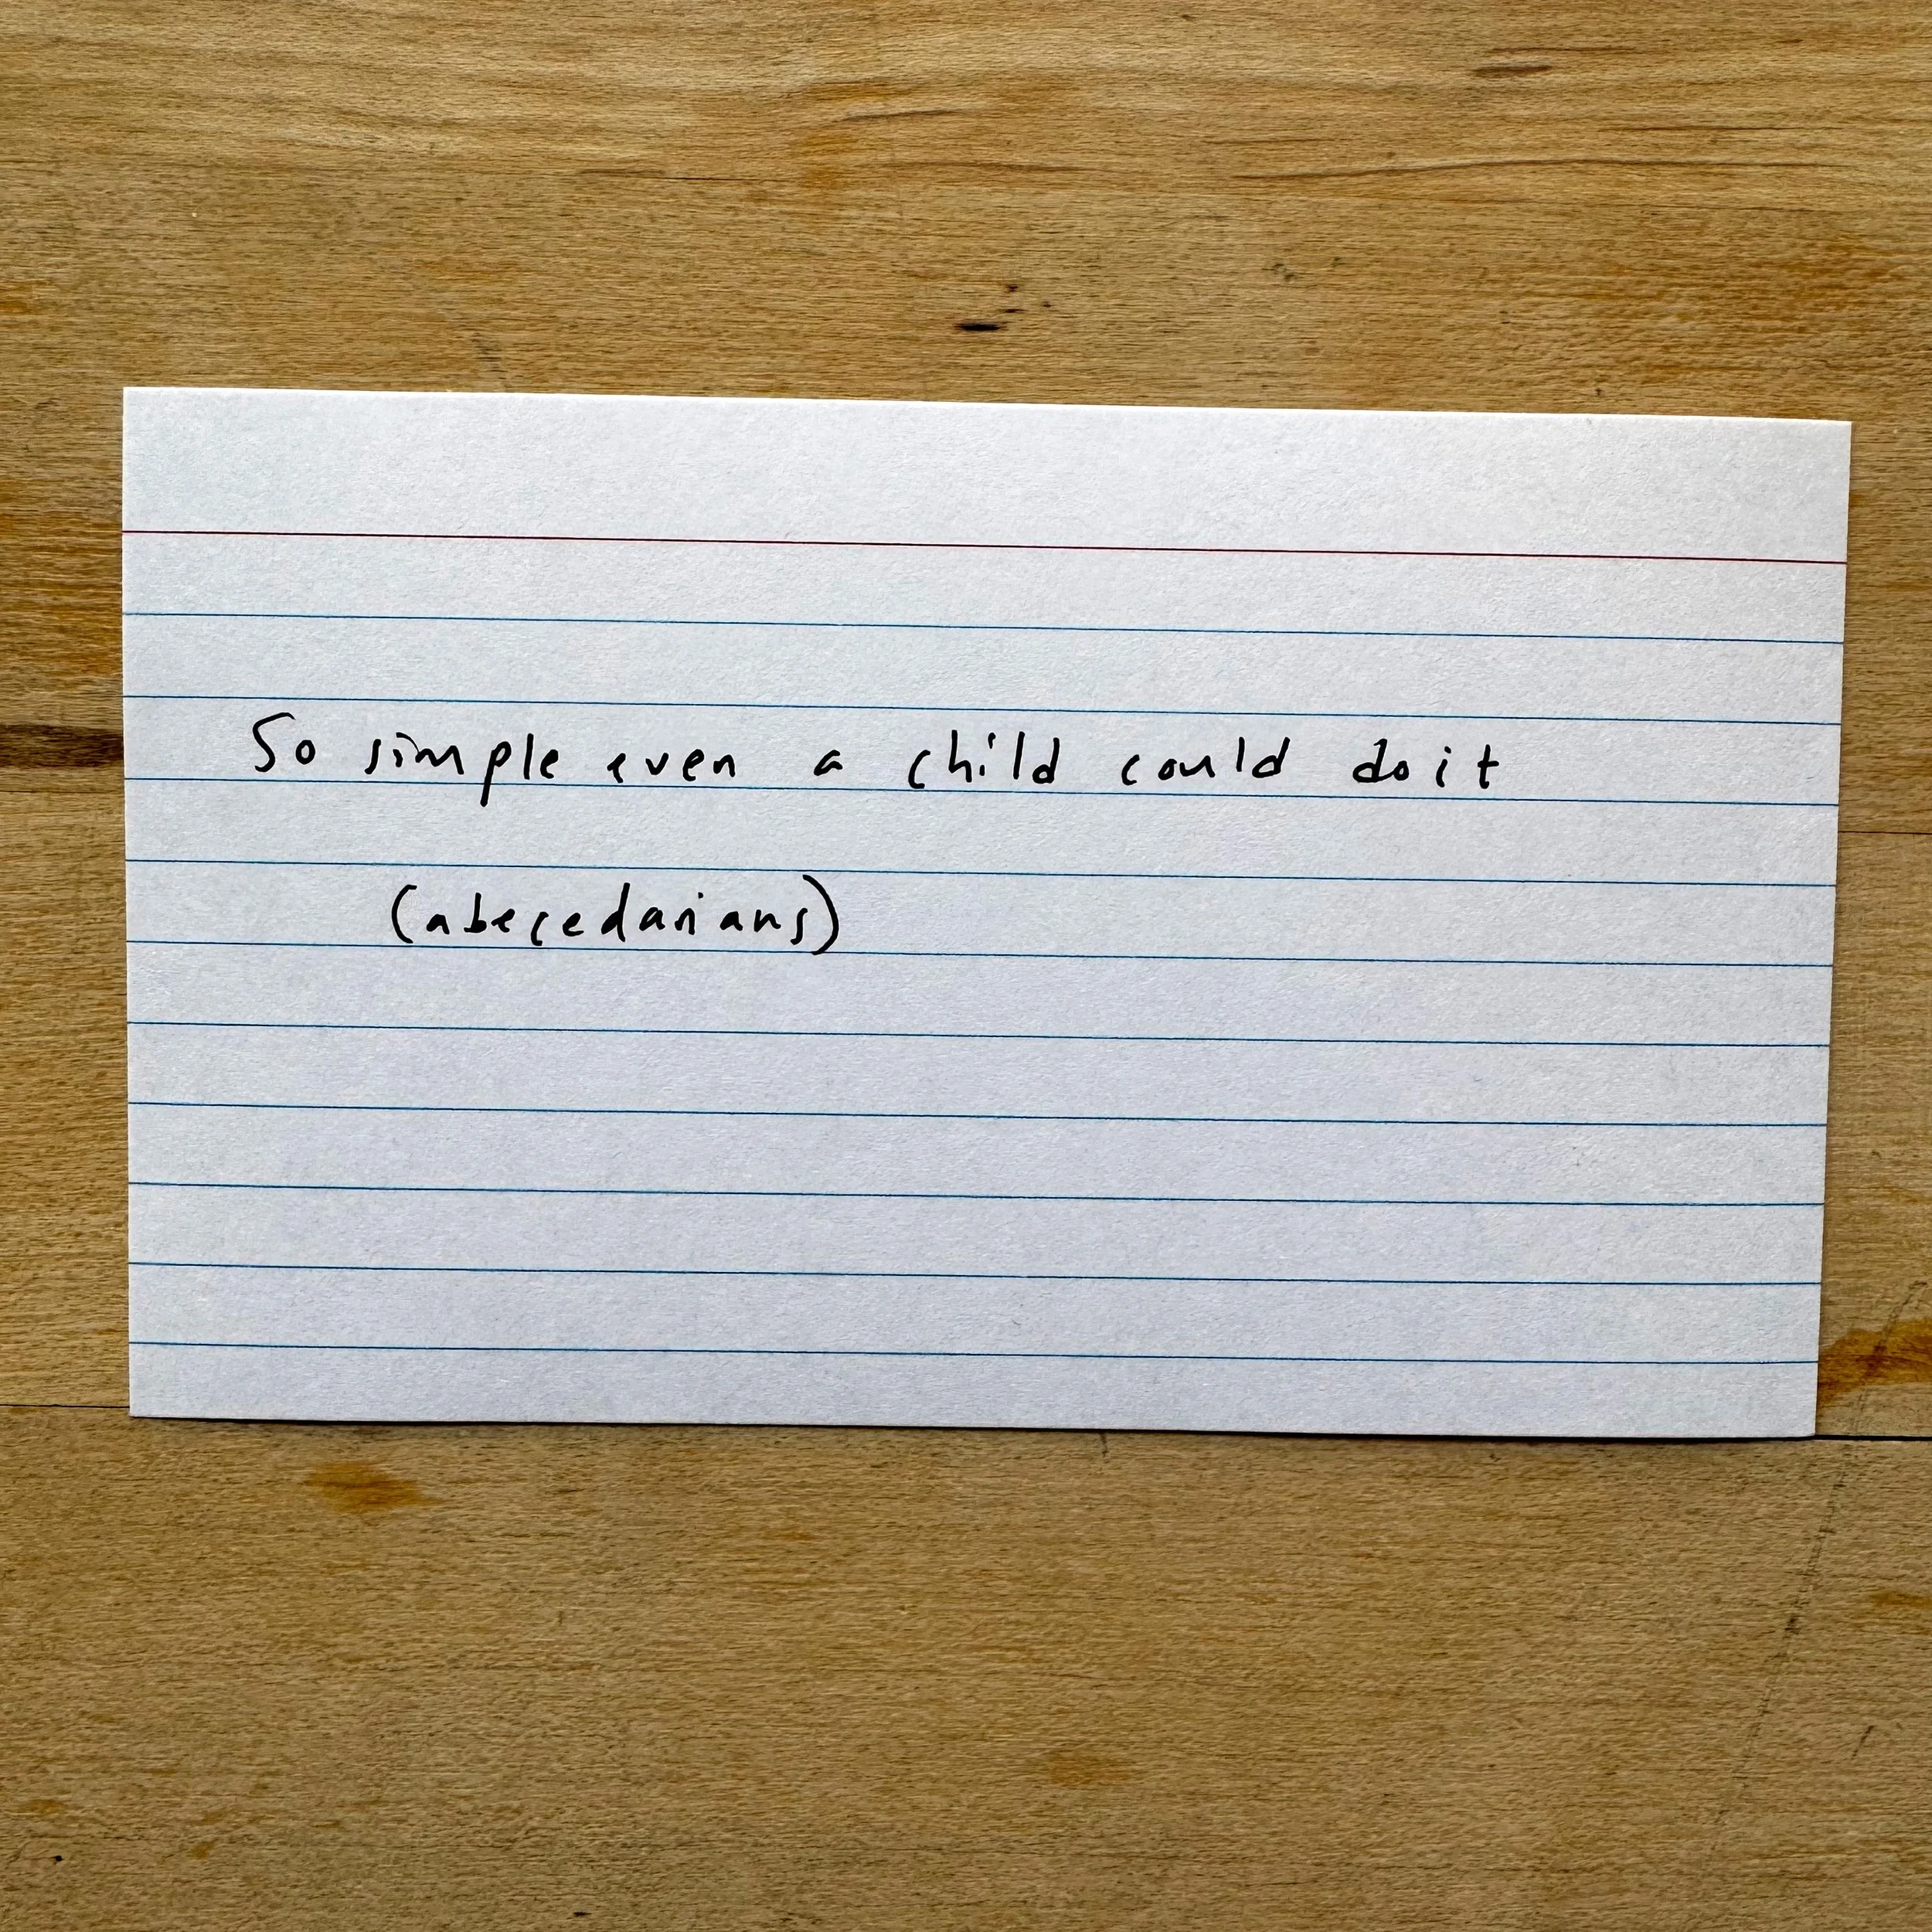 So simple even a child could do it
(abecedarians)